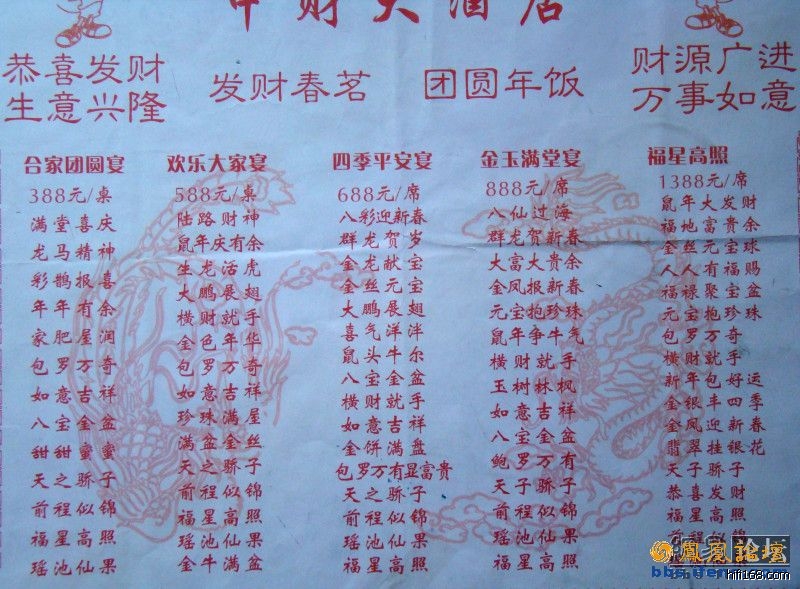 中财大酒店
恭喜发财
生意兴隆
发财春茗
团圆年饭
财源广进
万事如意
合家团圆宴
388元/桌
满堂喜庆
龙马精神
彩鹊报喜
年年有余
家肥屋润
包罗万奇
如意吉祥
八宝金盆
甜甜蜜蜜
天之骄子
前程似锦
福星高照
瑶池仙果
欢乐大家宴
588元/桌
陆路财神
鼠年庆有余
生龙活虎
大鹏展翅
横财就手
金色年华
包罗万奇
如意吉祥
珍珠满屋
满盆金丝
天之骄子
前程似锦
福星高照
瑶池仙果
金牛满盆
四季平安宴
688元/席
八彩迎新春
群龙贺岁
金龙献宝
金丝元宝
大鹏展翅
喜气洋洋
鼠头牛尔
八宝金盆
横财就手
如意吉祥
金饼满盘
包罗万有显富贵
天之骄子
前程似锦
瑶池仙果
福星高照
金玉满堂宴
888元/席
八仙过海
群龙贺新春
大富大贵余
金凤报新春
元宝抱珍珠
鼠年争牛气
横财就手
玉树林枫
如意吉祥
八宝金盆
鲍罗万有
天子骄子
前程似锦
瑶池仙果
福星高照
福星高照
1388元/席
鼠年大发财
福地富贵余
金丝元宝球
人人有福赐
福禄聚宝盆
元宝抱珍珠
包罗万奇
横财就手
新年包好运
金银丰四季
金凤迎新春
翡翠挂银花
天子骄子
恭喜发财
福星高照
凤凰论坛
hifi168.com